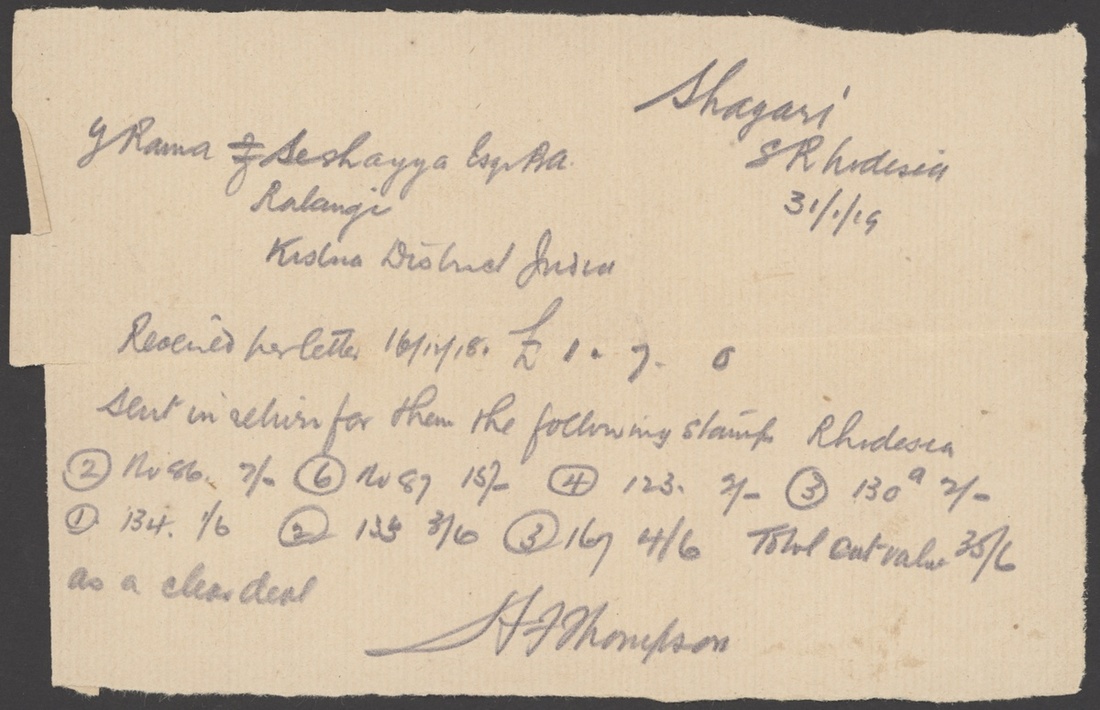 Shagari
S Rhodesia
31/1/19
Y Rama Seshayya Esqr BA.
Relangi
Kistna District India
Received per letter 16/12/18. £ 1. 7. 0
Sent in return for them the following stamps Rhodesia
② No 86. 7/- ⑥ No 87 15/- ④ 123. 2/- ③ 130a 2/-
① 134. 1/6 ② 135 3/6 ③ 167 4/6 Total cat value 35/6
as a clear deal
H F Thompson